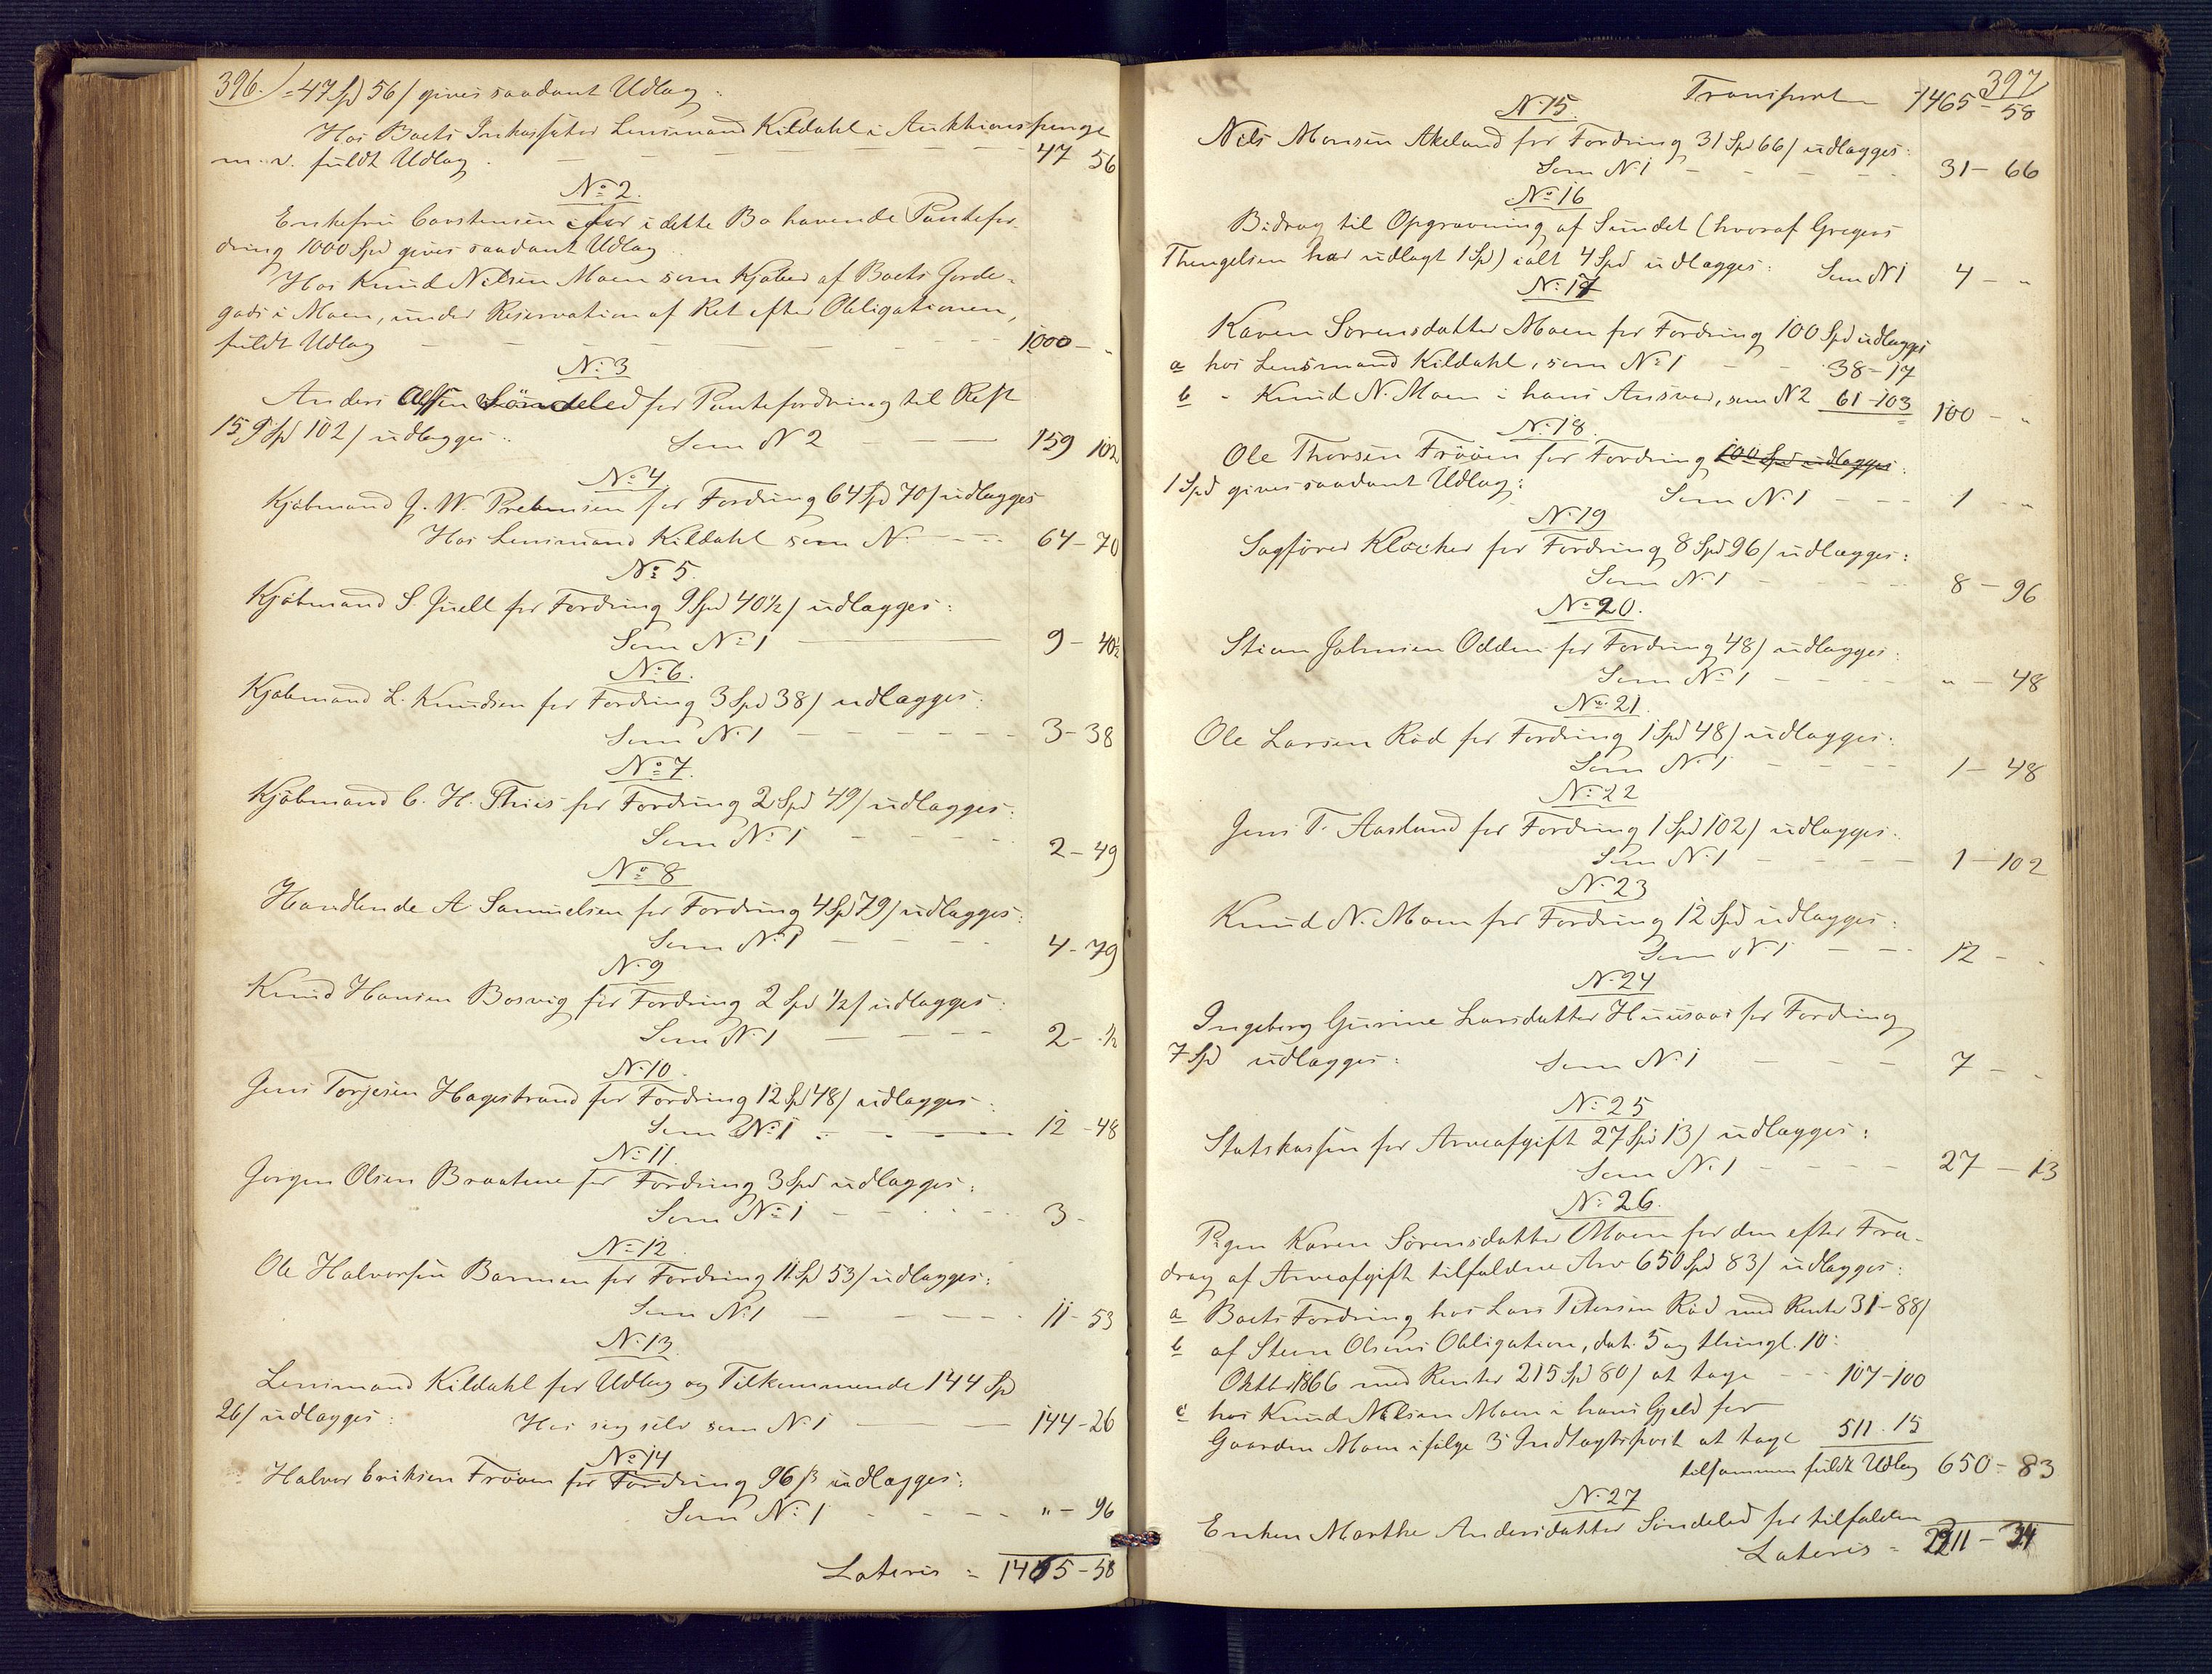 396. = 47 Spd 56 / gives saadant Udlag:
Hos Boets Inkassator Lensmand Kildahl i Auktionspenge
m. v. fuldt Udlag. — — — — — 47 56
No 2.
Enkefru Carstensen for i dette Bo havende Pantefor-
dring 1000 Spd gives saadant Udlag
Hos Knud Nilsen Moen som Kjøber af Boets Jorde-
gods i Moen, under Reservation af Ret efter Obligationen,
fuldt Udlag — — — — 1000 - "
No 3
Anders Olsen Söndeled for Pantefordring til Rest
159 Spd 102 / udlægges: Som N 2 — — 159 102
No 4
Kjøbmand J. W. Prebensen for Fordring 64 Spd 70 / udlægges
Hos Lensmand Kildahl som N. - - - - 64 - 70
No 5.
Kjøbmand S. Juell for Fordring 9 Spd 40 1/2 / udlægges:
Som No 1 ——— 9 - 40 1/2
No 6.
Kjøbmand L. Knudsen for Fordring 3 Spd 38 / udlægges:
Som No 1 - - - - - 3 - 38
No 7.
Kjøbmand C. H. Thiis for Fordring 2 Spd 49 / udlægges:
Som No 1 - - - - 2 - 49
No 8
Handlende A Samuelsen for Fordring 4 Spd 79 / udlægges:
Som No 1 — — - - 4 - 79
No 9
Knud Hansen Bosvig for Fordring 2 Spd 1/2 / udlægges:
Som No 1 — — — 2 - 1/2
No 10.
Jens Torjesen Hagestrand for Fordring 12 Spd 48 / udlægges:
Som No 1 - - - 12 - 48
No 11.
Jørgen Olsen Braatene for Fordring 3 Spd udlægges:
Som No 1 - - - - 3 -
No 12.
Ole Halvorsen Barmen for Fordring 11 Spd 53 / udlægges:
Som No 1 — - - - 11 - 53
No 13.
Lensmand Kildahl for Udlæg og Tilkommende 144 Spd
26 / udlægges: Hos sig selv som N 1 ——— 144 - 26
No 14
Halvor Eriksen Frøøen for Fordring 96 ß udlægges:
Som No 1 - - - - " - 96
Lateris = 1465 - 58
397
Transport 1465 - 58
No 15.
Nils Monsen Akeland for Fordring 31 Spd 66 / udlægges:
Som N 1 - - - - 31 - 66
No 16
Bidrag til Opgravning af Sundet (hvoraf Gregers
Thengelsen har udlagt 1 Spd) ialt 4 Spd udlægges: Som N 1 4 - "
No 17
Karen Sørensdatter Moen for Fordring 100 Spd udlægges
a hos Lensmand Kildahl, som No 1 - - 38 - 17
b " Knud N. Moen i hans Ansvar, som N 2 61 - 103 100 - "
No 18.
Ole Thorsen Frøöen for Fordring 100 Spd udlægges:
1 Spd gives saadant Udlæg: Som No 1 - - - 1 "
No 19
Sagfører Klöcker for Fordring 8 Spd 96 / udlægges:
Som No 1 - - - - 8 - 96
No 20.
Stian Johnsen Odden for Fordring 48 / udlægges:
Som No 1 - - - - " - 48
No 21.
Ole Larsen Röd for Fordring 1 Spd 48 / udlægges:
Som No 1 - - - - 1 - 48
No 22
Jens T. Aaslund for Fordring 1 Spd 102 / udlægges:
Som No 1 - - - - 1 - 102
No 23
Knud N. Moen for Fordring 12 Spd udlægges:
Som No 1 - - - 12 - -
No 24
Ingeborg Gurine Larsdatter for Fordring
7 Spd udlægges: Som No 1 - - - 7 - -
No 25
Statskassen for Arveafgift 27 Spd 13 / udlægges:
Som No 1 - - - - 27 - 13
No 26.
Pigen Karen Sörensdatter Moen for den efter Fra-
drag af Arveafgift tilfaldne Arv 650 Spd 83 / udlægges:
a Boets Fordring hos Lars Petersen Röd med Renter 31 - 88 /
b af Steen Olsens Obligation, dat. 5 og thingl. 10:
Oktbr 1866 med Renter 215 Spd 80 / at tage - - - 107 - 100
c hos Knud Nilsen Moen i hans Gjæld for
Gaarden Moen ifølge 3 Indtægtspost at tage 511 . 15
tilsammen fuldt Udlæg 650 - 83
No 27
Enken Marthe Andersdatter Söndeled for tilfalden
Lateris = 2311 - 34